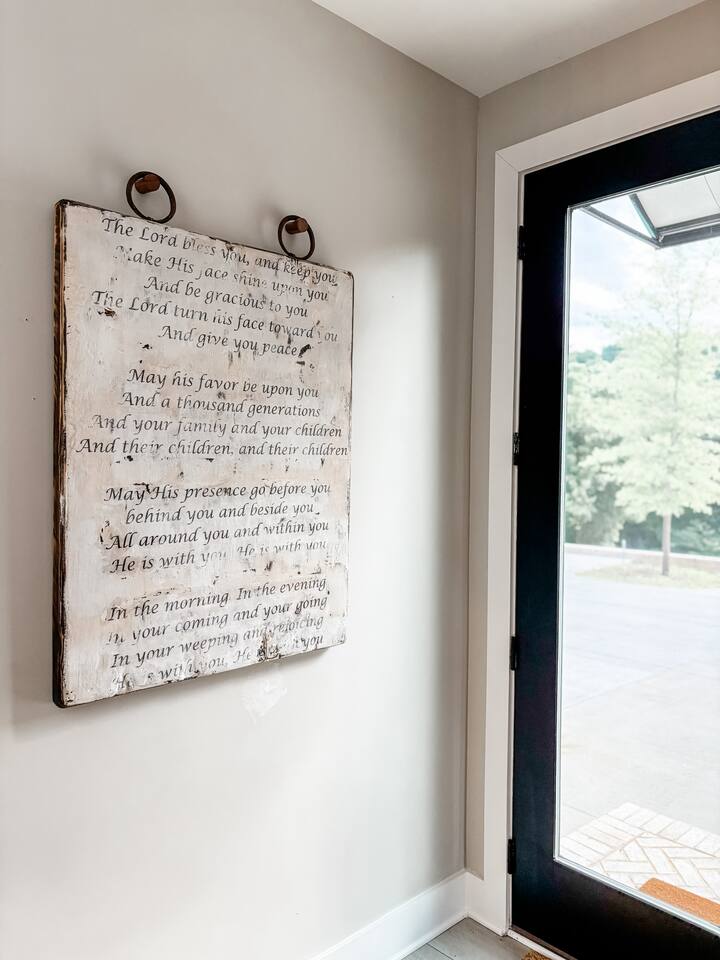 The Lord bless you, and keep you
Make His face shine upon you
And be gracious to you
The Lord turn his face toward you
And give you peace
May his favor be upon you
And a thousand generations
And your family and your children
And their children, and their children
May His presence go before you
behind you and beside you
All around you and within you
He is with you, He is with you
In the morning, In the evening
In your coming and your going
In your weeping and rejoicing
He is with you, He is with you